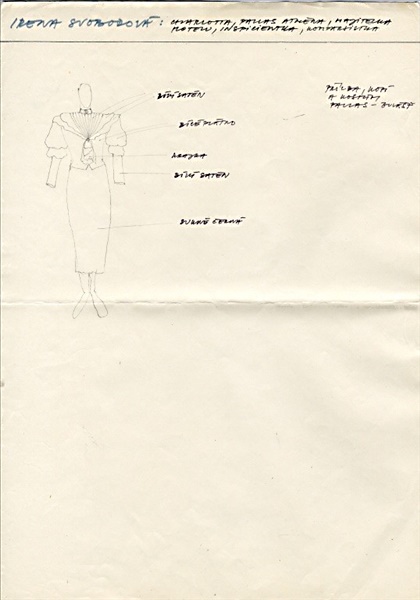 IRENA SVOBODOVÁ: CHARLOTTA, PALLAS ATHÉNA, MAJITELKA
HOTELU, INSPICIENTKA,
PŘILBA, KOPÍ
A KOSTÝM
PALLAS -
BÍLÝ SATÉN
BÍLÉ PLÁTNO
KRAJKA
BÍLÝ SATÉN
SUKNĚ ČERNÁ